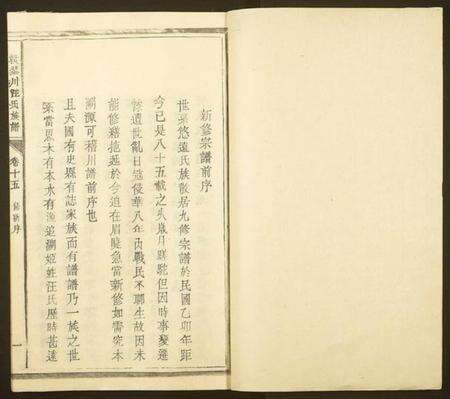 新修宗譜前序
世系悠遠氏族散居九修宗譜於民國乙卯年距
今已是八十五載之久歲月馳但因時事變遷
慘遭世亂日寇侵華八年內戰民不聊生故因未
能修繕拖延於今迫在眉睫急需新修如需究本
溯源可稽川譜前序也
且夫國有史縣有誌家族而有譜譜乃一族之世
系當思木有本水有追溯姬姓汪氏歷時甚遠
川汪氏族譜
卷十五
序
一